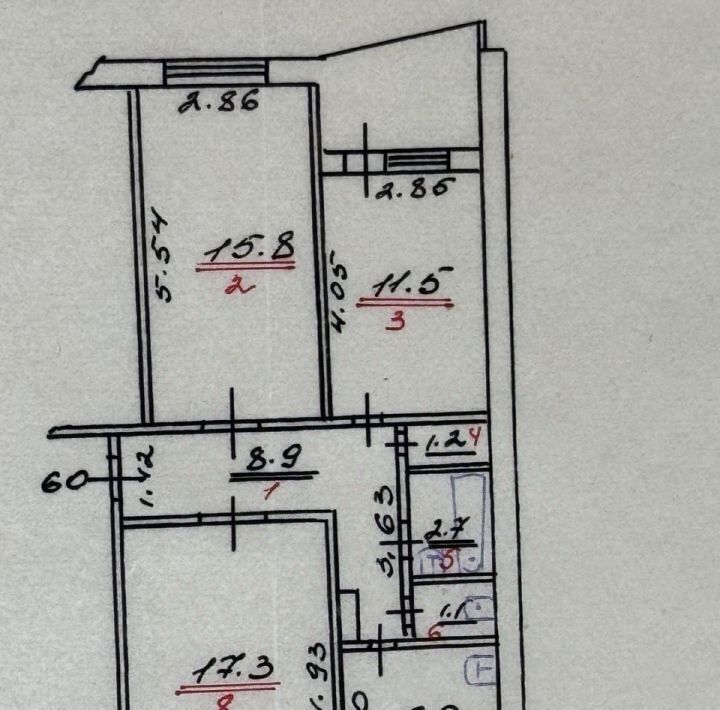 2.86
2.85
5.54
15.8
2
4.05
11.5
3
60
1.42
8.9
1
1.2 4
3,63
2.7
5
1.1
6
17.3
8
.93